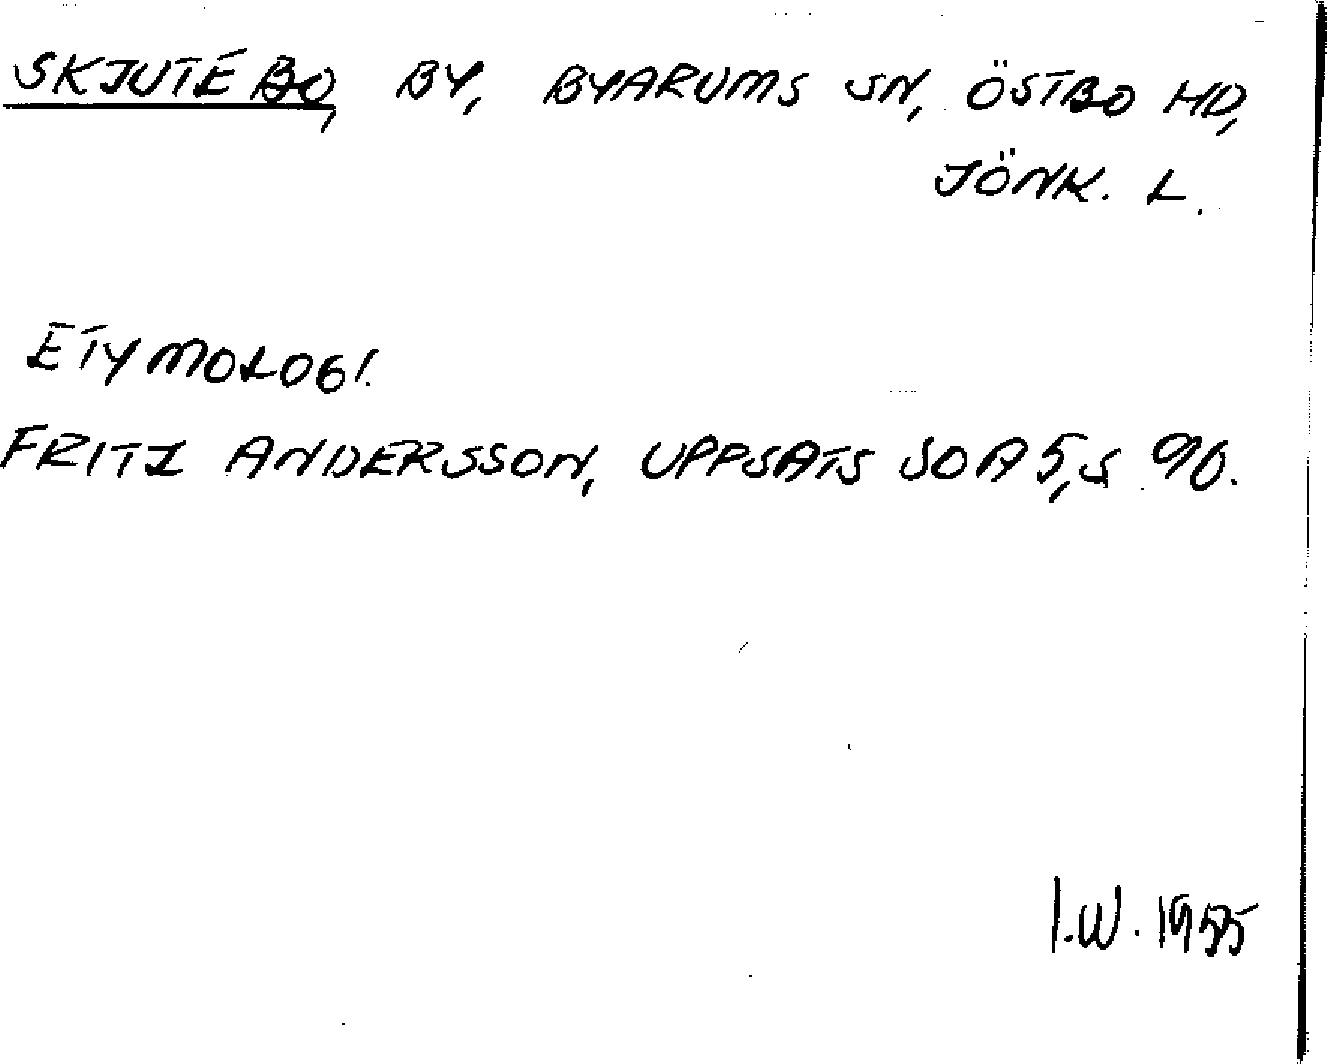 SKJUTEBO, BY, BYARUMS SN, ÖSTBO HD,
JÖNK. L.
ETYMOLOGI.
FRITZ ANDERSSON, UPPSATS SOA 5, S 90.
I.W. 1955